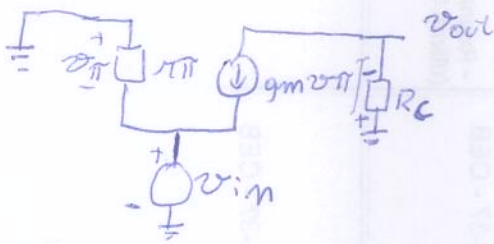 vout
+
vπ rπ
-
gmvπ
-
RC
+
+
vin
-